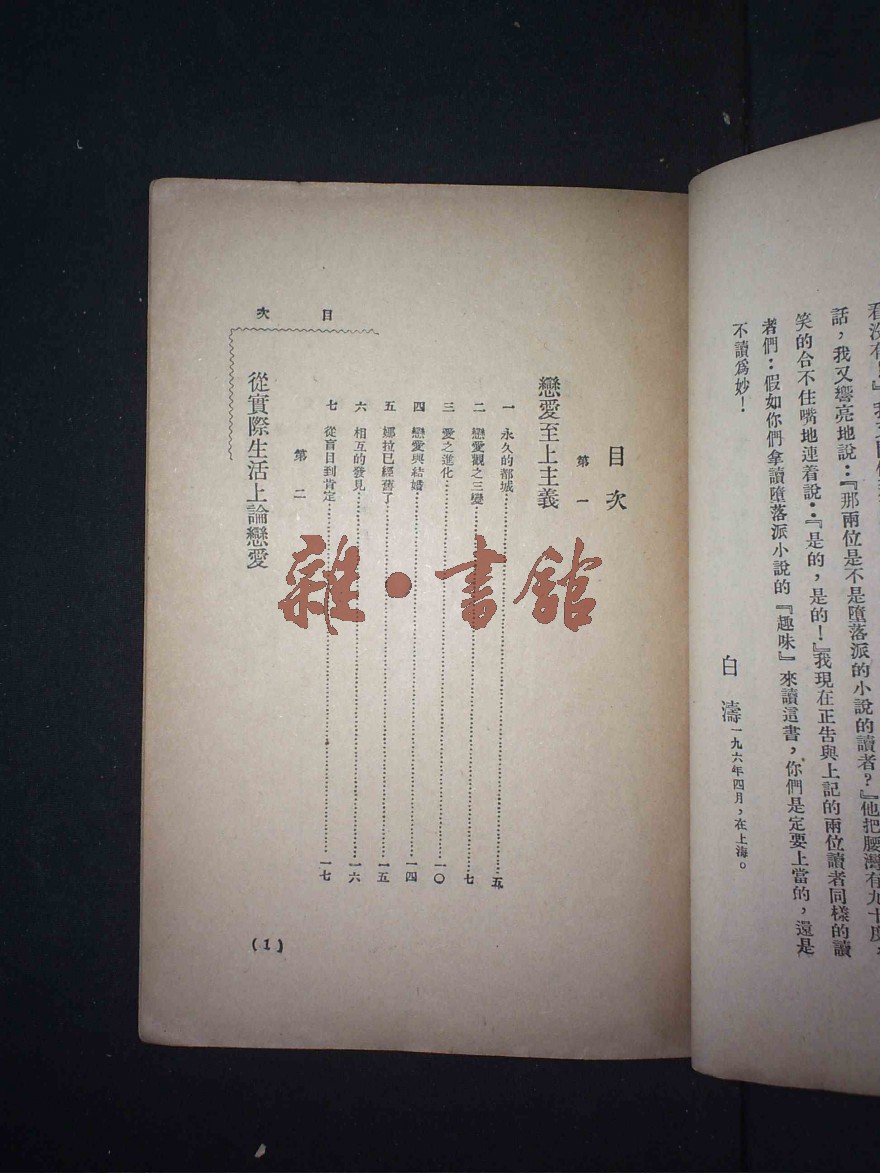 看沒有!』
話，我又響亮地說：『那兩位是不是墮落派的小說的讀者？』他把腰灣有九十度，
笑的合不住嘴地連着說：『是的，是的！』我現在正告與上記的兩位讀者同樣的讀
者們：假如你們拿讀墮落派小說的『趣味』來讀這書，你們是定要上當的，還是
不讀爲妙！
白濤一九六年四月，在上海。
目次
目次
第一
戀愛至上主義
一 永久的都城……五
二 戀愛觀之三變……七
三 愛之進化……一〇
四 戀愛與結婚……一四
五 娜拉已經舊了……一五
六 相互的發見……一六
七 從盲目到肯定……一七
第二
從實際生活上論戀愛
(1)
雜·書舘